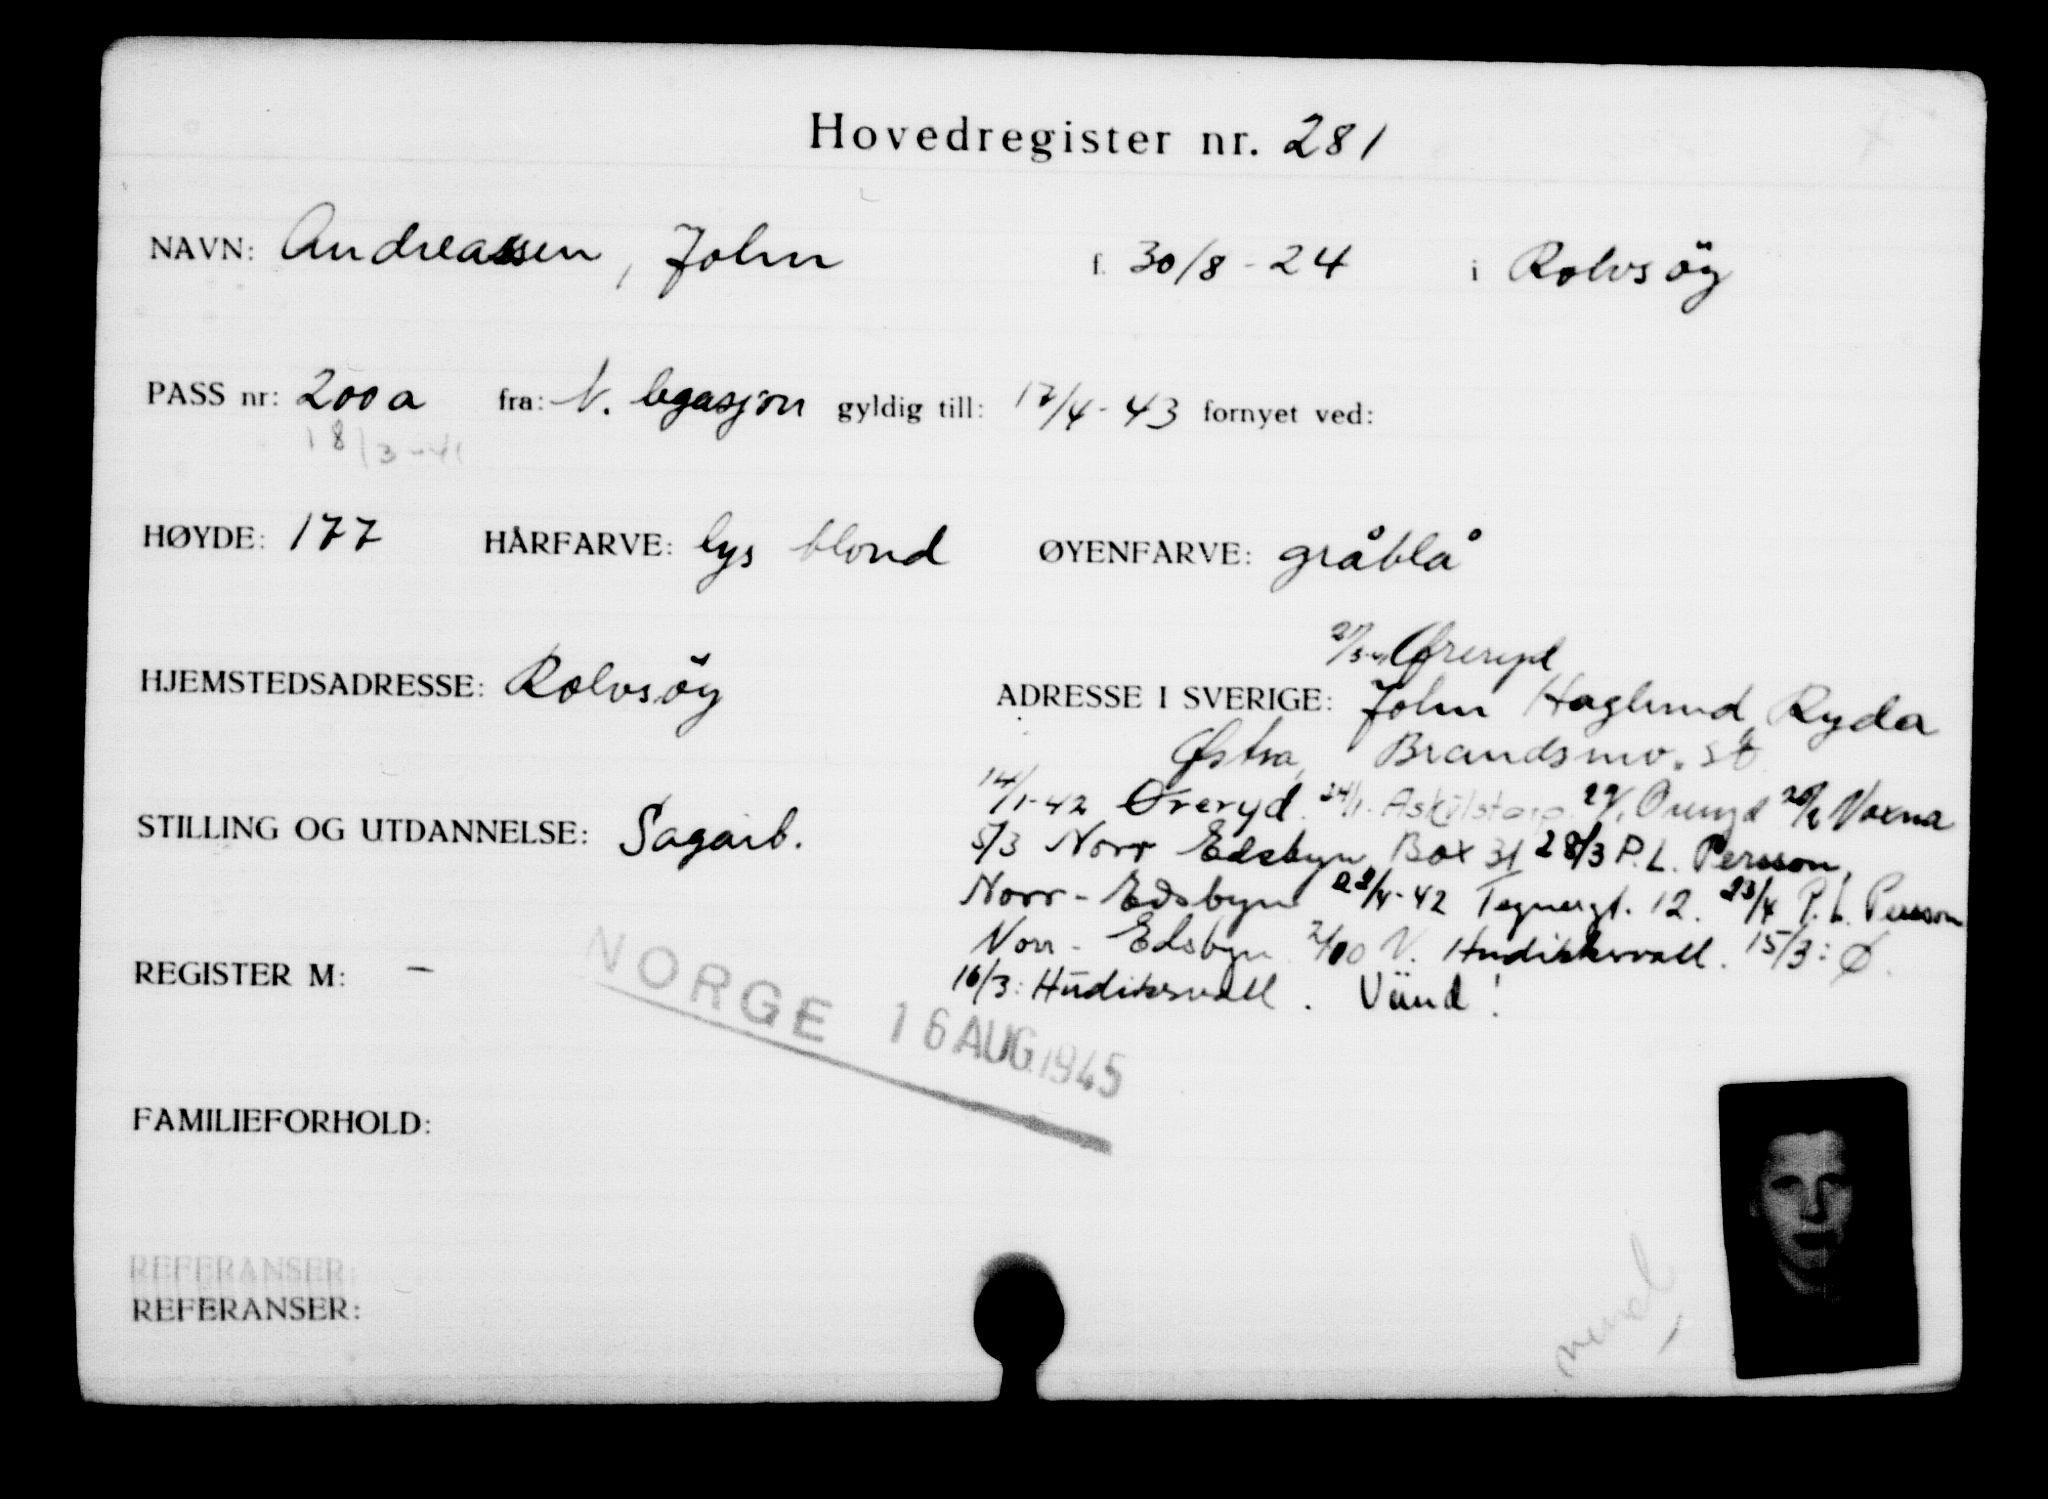 Hovedregister nr. 281
NAVN: Andreassen, John f. 30/8 - 24 i Rolvsöy
PASS nr: 200a fra: N. legasjon gyldig till: 17/4 - 43 fornyet ved:
18/3 - 41
HØYDE: 177 HÅRFARVE: lys blond ØYENFARVE: gråblå
Øreryd
HJEMSTEDSADRESSE: Rolvsöy ADRESSE I SVERIGE: John Haglund Ryda
Østra, Brandsmo. st
14/1-42 Øreryd. 24/1. Askilstorp. Öreryd Voxna
STILLING OG UTDANNELSE: Sagarb.
5/3 Norr Edsbyn Box 31 28/3 P.L. Persson,
Norr - Edsbyn 22/4-42 Tegnergt. 12. 23/4 P.L. Persson
Norr - Edsbyn. N. Hudiksvall. 15/3: Ø.
REGISTER M: - 16/3: Hudiksvall. Vünd!
NORGE 16 AUG. 1945
FAMILIEFORHOLD:
REFERANSER:
REFERANSER:
vend,